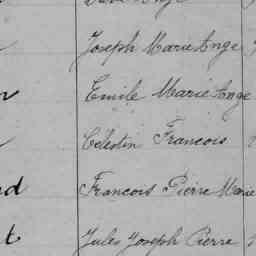 Joseph Marie Ange
Emile Marie Ange
Célestin François
François Pierre Marie
Jules Joseph Pierre